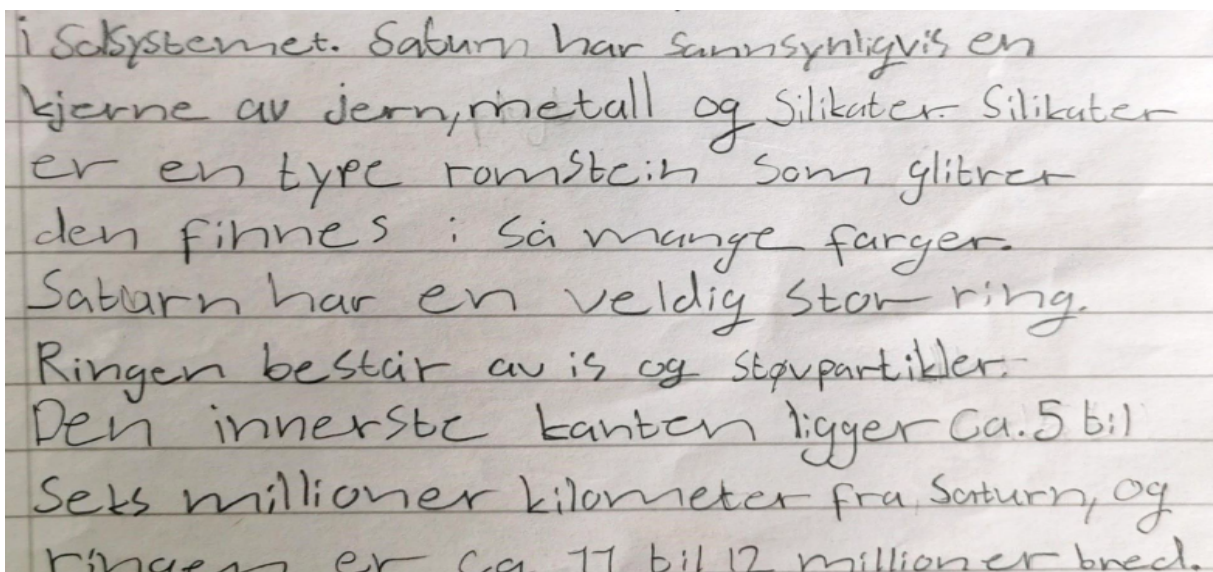 i Solsystemet. Saturn har sannsynligvis en
kjerne av jern, metall og Silikater. Silikater
er en type romstein som glitrer
den finnes i så mange farger.
Saturn har en veldig stor ring.
Ringen består av is og støvpartikler.
Den innerste kanten ligger Ca. 5 til
Seks millioner kilometer fra Saturn, og
ringen er ca 11 til 12 millioner bred.